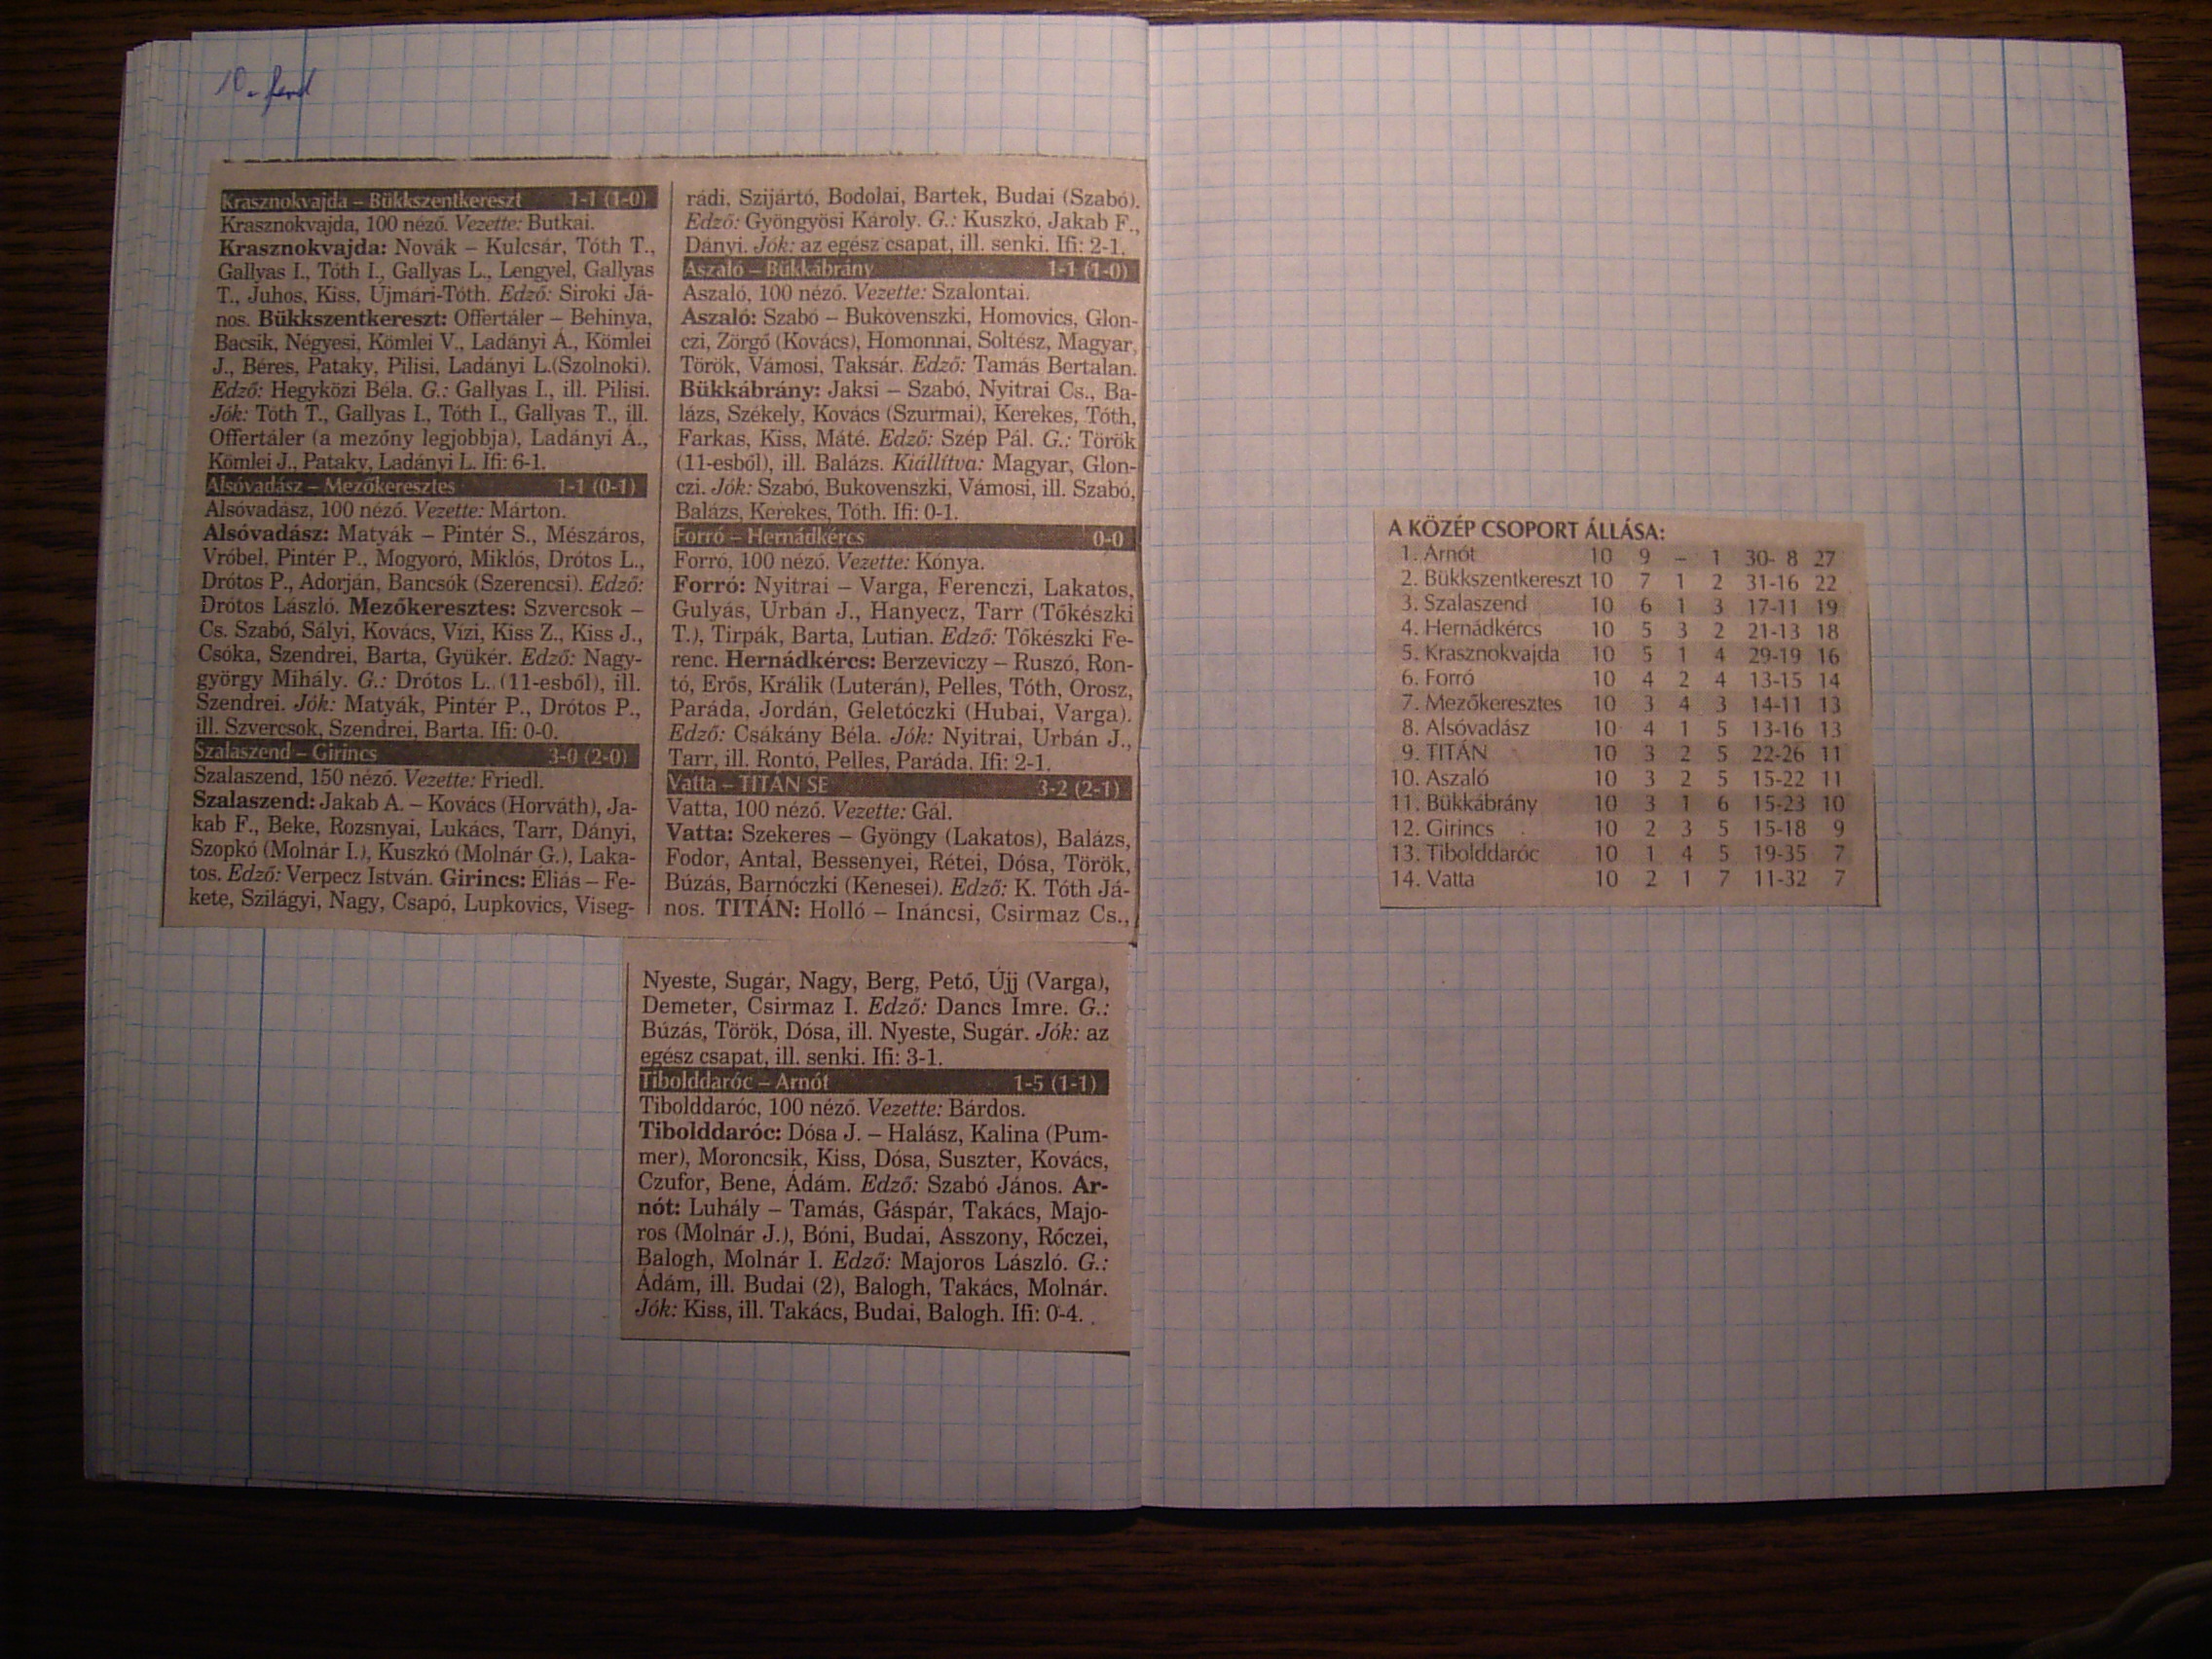 10. ford
Krasznokvajda – Bükkszentkereszt 1-1 (1-0)
Krasznokvajda, 100 néző. Vezette: Butkai.
Krasznokvajda: Novák – Kulcsár, Tóth T.,
Gallyas I., Tóth I., Gallyas L., Lengyel, Gallyas
T., Juhos, Kiss, Újmári-Tóth. Edző: Siroki Já-
nos. Bükkszentkereszt: Offertáler – Behinya,
Bacsik, Négyesi, Kömlei V., Ladányi Á., Kömlei
J., Béres, Pataky, Pilisi, Ladányi L.(Szolnoki).
Edző: Hegyközi Béla. G.: Gallyas I., ill. Pilisi.
Jók: Tóth T., Gallyas I., Tóth I., Gallyas T., ill.
Offertáler (a mezőny legjobbja), Ladányi Á.,
Kömlei J., Pataky, Ladányi L. Ifi: 6-1.
Alsóvadász – Mezőkeresztes 1-1 (0-1)
Alsóvadász, 100 néző. Vezette: Márton.
Alsóvadász: Matyák – Pintér S., Mészáros,
Vróbel, Pintér P., Mogyoró, Miklós, Drótos L.,
Drótos P., Adorján, Bancsók (Szerencsi). Edző:
Drótos László. Mezőkeresztes: Szvercsok –
Cs. Szabó, Sályi, Kovács, Vizi, Kiss Z., Kiss J.,
Csóka, Szendrei, Barta, Gyükér. Edző: Nagy-
györgy Mihály. G.: Drótos L. (11-esből), ill.
Szendrei. Jók: Matyák, Pintér P., Drótos P.,
ill. Szvercsok, Szendrei, Barta. Ifi: 0-0.
Szalaszend – Girincs 3-0 (2-0)
Szalaszend, 150 néző. Vezette: Friedl.
Szalaszend: Jakab A. – Kovács (Horváth), Ja-
kab F., Beke, Rozsnyai, Lukács, Tarr, Dányi,
Szopkó (Molnár I.), Kuszkó (Molnár G.), Laka-
tos. Edző: Verpecz István. Girincs: Éliás – Fe-
kete, Szilágyi, Nagy, Csapó, Lupkovics, Viseg-
rádi, Szijártó, Bodolai, Bartek, Budai (Szabó).
Edző: Gyöngyösi Károly. G.: Kuszkó, Jakab F.,
Dányi. Jók: az egész csapat, ill. senki. Ifi: 2-1.
Aszaló – Bükkábrány 1-1 (1-0)
Aszaló, 100 néző. Vezette: Szalontai.
Aszaló: Szabó – Bukovenszki, Homovics, Glon-
czi, Zörgő (Kovács), Homonnai, Soltész, Magyar,
Török, Vámosi, Taksár. Edző: Tamás Bertalan.
Bükkábrány: Jaksi – Szabó, Nyitrai Cs., Ba-
lázs, Székely, Kovács (Szurmai), Kerekes, Tóth,
Farkas, Kiss, Máté. Edző: Szép Pál. G.: Török
(11-esből), ill. Balázs. Kiállítva: Magyar, Glon-
czi. Jók: Szabó, Bukovenszki, Vámosi, ill. Szabó,
Balázs, Kerekes, Tóth. Ifi: 0-1.
Forró – Hernádkércs 0-0
Forró, 100 néző. Vezette: Kónya.
Forró: Nyitrai – Varga, Ferenczi, Lakatos,
Gulyás, Urbán J., Hanyecz, Tarr (Tőkészki
T.), Tirpák, Barta, Lutian. Edző: Tőkészki Fe-
renc. Hernádkércs: Berzeviczy – Ruszó, Ron-
tó, Erős, Králik (Luterán), Pelles, Tóth, Orosz,
Paráda, Jordán, Geletóczki (Hubai, Varga).
Edző: Csákány Béla. Jók: Nyitrai, Urbán J.,
Tarr, ill. Rontó, Pelles, Paráda. Ifi: 2-1.
Vatta – TITÁN SE 3-2 (2-1)
Vatta, 100 néző. Vezette: Gál.
Vatta: Szekeres – Gyöngy (Lakatos), Balázs,
Fodor, Antal, Bessenyei, Rétei, Dósa, Török,
Búzás, Barnóczki (Kenesei). Edző: K. Tóth Já-
nos. TITÁN: Holló – Ináncsi, Csirmaz Cs.,
Nyeste, Sugár, Nagy, Berg, Pető, Újj (Varga),
Demeter, Csirmaz I. Edző: Dancs Imre. G.:
Búzás, Török, Dósa, ill. Nyeste, Sugár. Jók: az
egész csapat, ill. senki. Ifi: 3-1.
Tibolddaróc – Arnót 1-5 (1-1)
Tibolddaróc, 100 néző. Vezette: Bárdos.
Tibolddaróc: Dósa J. – Halász, Kalina (Pum-
mer), Moroncsik, Kiss, Dósa, Suszter, Kovács,
Czufor, Bene, Ádám. Edző: Szabó János. Ar-
nót: Luhály – Tamás, Gáspár, Takács, Majo-
ros (Molnár J.), Bóni, Budai, Asszony, Rőczei,
Balogh, Molnár I. Edző: Majoros László. G.:
Ádám, ill. Budai (2), Balogh, Takács, Molnár.
Jók: Kiss, ill. Takács, Budai, Balogh. Ifi: 0-4.
A KÖZÉP CSOPORT ÁLLÁSA:
1. Arnót 10 9 – 1 30- 8 27
2. Bükkszentkereszt 10 7 1 2 31-16 22
3. Szalaszend 10 6 1 3 17-11 19
4. Hernádkércs 10 5 3 2 21-13 18
5. Krasznokvajda 10 5 1 4 29-19 16
6. Forró 10 4 2 4 13-15 14
7. Mezőkeresztes 10 3 4 3 14-11 13
8. Alsóvadász 10 4 1 5 13-16 13
9. TITÁN 10 3 2 5 22-26 11
10. Aszaló 10 3 2 5 15-22 11
11. Bükkábrány 10 3 1 6 15-23 10
12. Girincs 10 2 3 5 15-18 9
13. Tibolddaróc 10 1 4 5 19-35 7
14. Vatta 10 2 1 7 11-32 7